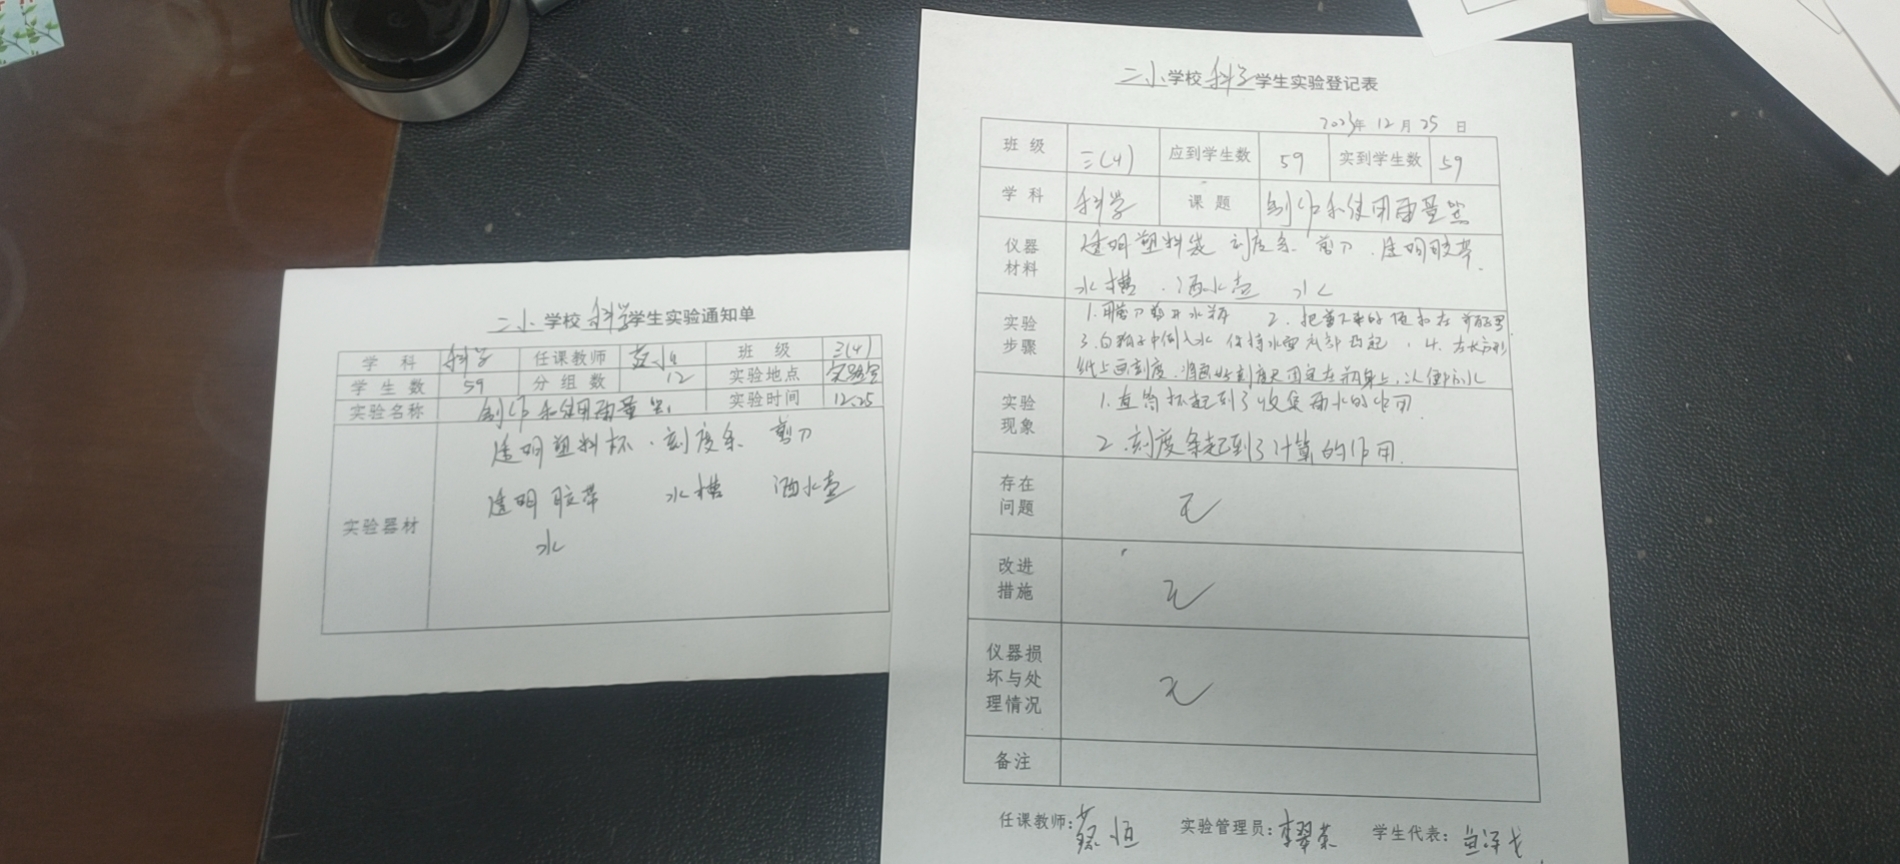 二小学校科学学生实验通知单
学科 科学 任课教师 蔡恒 班级 三(4)
学生数 59 分组数 12 实验地点 实验室
实验名称 制作和使用雨量器 实验时间 12.25
实验器材
透明塑料杯、刻度条 剪刀
透明胶带 水槽 洒水壶
水
二小学校科学学生实验登记表
2023年12月25日
班级 三(4) 应到学生数 59 实到学生数 59
学科 科学 课题 制作和使用雨量器
仪器材料
透明塑料袋 刻度条 剪刀、透明胶带、
水槽、洒水壶 水
实验步骤
1.用剪刀剪开水瓶 2.把剪下来的
3.向瓶子中倒入水 保持水面 底部凸起、4.在长方形
纸上画刻度,将画好刻度尺固定在瓶身上,以便防水
实验现象
1.直筒杯起到了收集雨水的作用
2.刻度条起到了计算的作用.
存在问题 无
改进措施 无
仪器损坏与处理情况 无
备注
任课教师:蔡恒 实验管理员:李翠荣 学生代表: